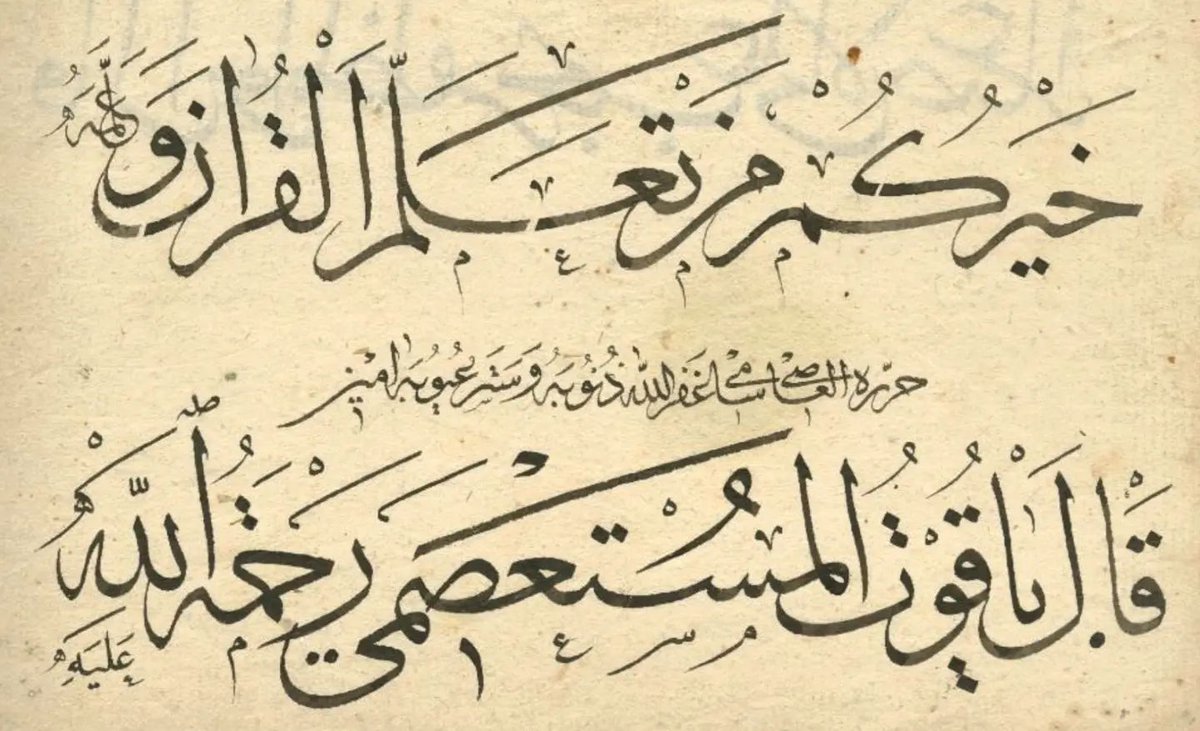 خَيْرُكُمْ مَنْ تَعَلَّمَ الْقُرْآنَ وَعَلَّمَهُ
حرّره العاصي سامي غفر الله ذُنُوبَهُ وَسَتَرَ عُيُوبَهُ آمين
قَالَ يَاقُوتُ الْمُسْتَعْصِمِي رَحْمَةُ اللّٰهِ عَلَيْهِ